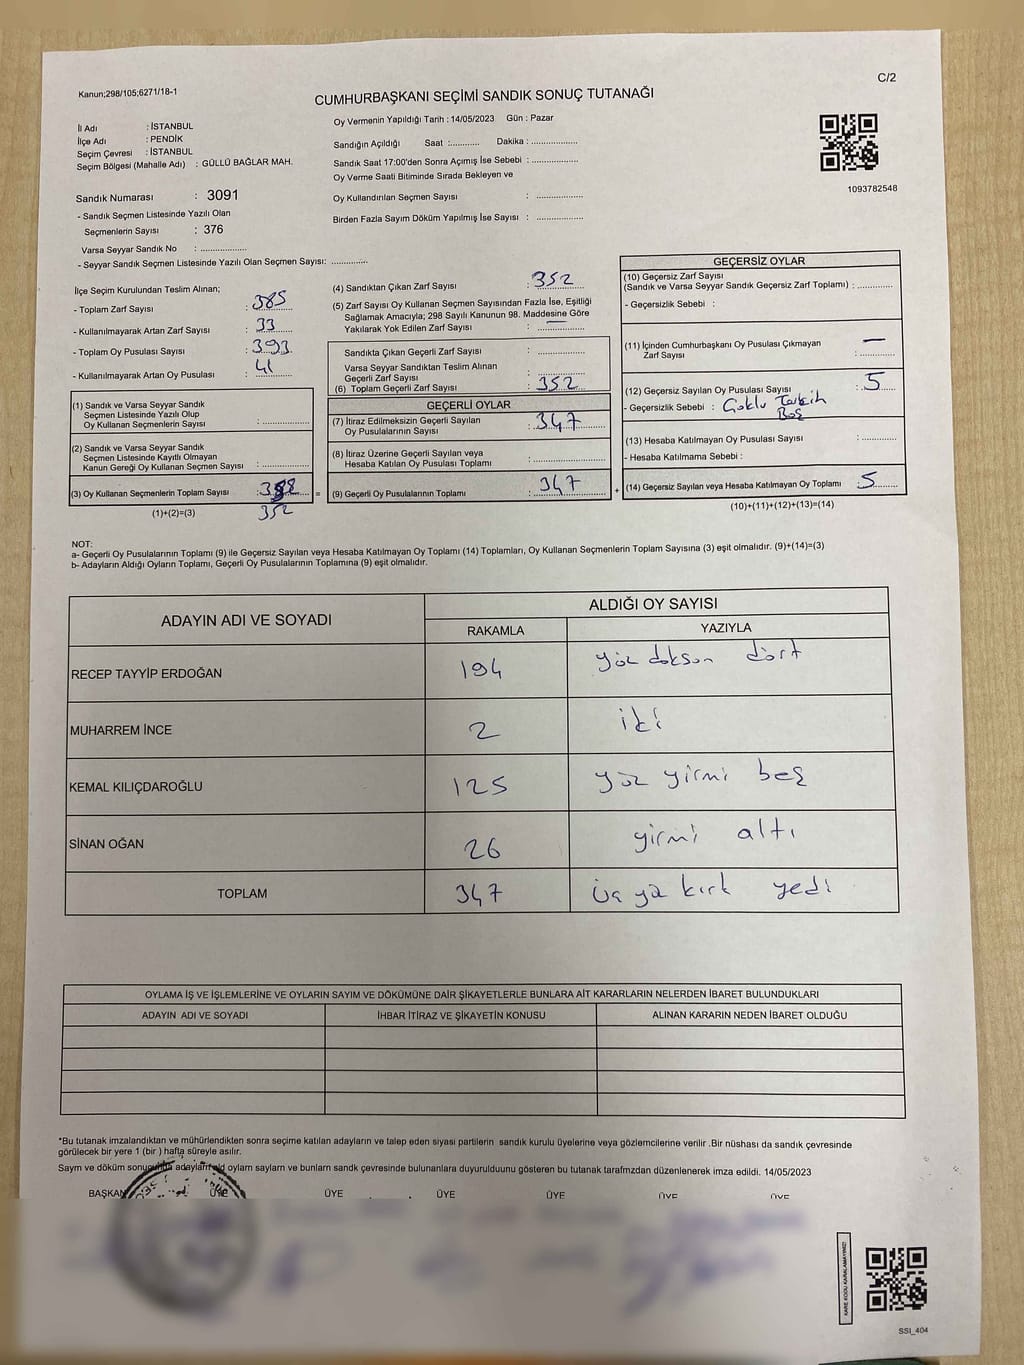 Kanun;298/105;6271/18-1
C/2
CUMHURBAŞKANI SEÇİMİ SANDIK SONUÇ TUTANAĞI
İl Adı : İSTANBUL
İlçe Adı : PENDİK
Seçim Çevresi : İSTANBUL
Seçim Bölgesi (Mahalle Adı) : GÜLLÜ BAĞLAR MAH.
Sandık Numarası : 3091
- Sandık Seçmen Listesinde Yazılı Olan
Seçmenlerin Sayısı : 376
Varsa Seyyar Sandık No : ..................
- Seyyar Sandık Seçmen Listesinde Yazılı Olan Seçmen Sayısı: ..............
Oy Vermenin Yapıldığı Tarih : 14/05/2023 Gün : Pazar
Sandığın Açıldığı Saat :.............. Dakika : ..................
Sandık Saat 17:00'den Sonra Açımış İse Sebebi : ..................
Oy Verme Saati Bitiminde Sırada Bekleyen ve
Oy Kullandırılan Seçmen Sayısı : ..................
Birden Fazla Sayım Döküm Yapılmış İse Sayısı : ..................
1093782548
İlçe Seçim Kurulundan Teslim Alınan;
- Toplam Zarf Sayısı : 385
- Kullanılmayarak Artan Zarf Sayısı : 33
- Toplam Oy Pusulası Sayısı : 393
- Kullanılmayarak Artan Oy Pusulası : 41
(1) Sandık ve Varsa Seyyar Sandık
Seçmen Listesinde Yazılı Olup
Oy Kullanan Seçmenlerin Sayısı : ..................
(2) Sandık ve Varsa Seyyar Sandık
Seçmen Listesinde Kayıtlı Olmayan
Kanun Gereği Oy Kullanan Seçmen Sayısı : ..................
(3) Oy Kullanan Seçmenlerin Toplam Sayısı : =
352
(1)+(2)=(3)
(4) Sandıktan Çıkan Zarf Sayısı : 352
(5) Zarf Sayısı Oy Kullanan Seçmen Sayısından Fazla İse, Eşitliği
Sağlamak Amacıyla; 298 Sayılı Kanunun 98. Maddesine Göre
Yakılarak Yok Edilen Zarf Sayısı : —
Sandıkta Çıkan Geçerli Zarf Sayısı : ..................
Varsa Seyyar Sandıktan Teslim Alınan
Geçerli Zarf Sayısı : ..................
(6) Toplam Geçerli Zarf Sayısı : 352
GEÇERLİ OYLAR
(7) İtiraz Edilmeksizin Geçerli Sayılan
Oy Pusulalarının Sayısı : 347
(8) İtiraz Üzerine Geçerli Sayılan veya
Hesaba Katılan Oy Pusulası Toplamı : ..................
(9) Geçerli Oy Pusulalarının Toplamı : 347 +
GEÇERSİZ OYLAR
(10) Geçersiz Zarf Sayısı
(Sandık ve Varsa Seyyar Sandık Geçersiz Zarf Toplamı) : ..............
- Geçersizlik Sebebi :
(11) İçinden Cumhurbaşkanı Oy Pusulası Çıkmayan
Zarf Sayısı : —
(12) Geçersiz Sayılan Oy Pusulası Sayısı : 5
- Geçersizlik Sebebi : Çoklu Tercih
Boş
(13) Hesaba Katılmayan Oy Pusulası Sayısı : ..............
- Hesaba Katılmama Sebebi :
(14) Geçersiz Sayılan veya Hesaba Katılmayan Oy Toplamı : 5
(10)+(11)+(12)+(13)=(14)
NOT:
a- Geçerli Oy Pusulalarının Toplamı (9) ile Geçersiz Sayılan veya Hesaba Katılmayan Oy Toplamı (14) Toplamları, Oy Kullanan Seçmenlerin Toplam Sayısına (3) eşit olmalıdır. (9)+(14)=(3)
b- Adayların Aldığı Oyların Toplamı, Geçerli Oy Pusulalarının Toplamına (9) eşit olmalıdır.
ADAYIN ADI VE SOYADI ALDIĞI OY SAYISI
RAKAMLA YAZIYLA
RECEP TAYYİP ERDOĞAN 194 yüz doksan dört
MUHARREM İNCE 2 iki
KEMAL KILIÇDAROĞLU 125 yüz yirmi beş
SİNAN OĞAN 26 yirmi altı
TOPLAM 347 üç yüz kırk yedi
OYLAMA İŞ VE İŞLEMLERİNE VE OYLARIN SAYIM VE DÖKÜMÜNE DAİR ŞİKAYETLERLE BUNLARA AİT KARARLARIN NELERDEN İBARET BULUNDUKLARI
ADAYIN ADI VE SOYADI İHBAR İTİRAZ VE ŞİKAYETİN KONUSU ALINAN KARARIN NEDEN İBARET OLDUĞU
*Bu tutanak imzalandıktan ve mühürlendikten sonra seçime katılan adayların ve talep eden siyası partilerin sandık kurulu üyelerine veya gözlemcilerine verilir .Bir nüshası da sandık çevresinde
görülecek bir yere 1 (bir ) hafta süreyle asılır.
Sayım ve döküm sonuçunda adayların oylarn saylarn ve bunların sandk çevresinde bulunanlara duyurulduunu gösteren bu tutanak tarafmzdan düzenlenerek imza edildi. 14/05/2023
BAŞKAN ÜYE ÜYE ÜYE ÜYE ÜYE ÜYE
KARE KODU KARALAMAYINIZ!
SSI_404